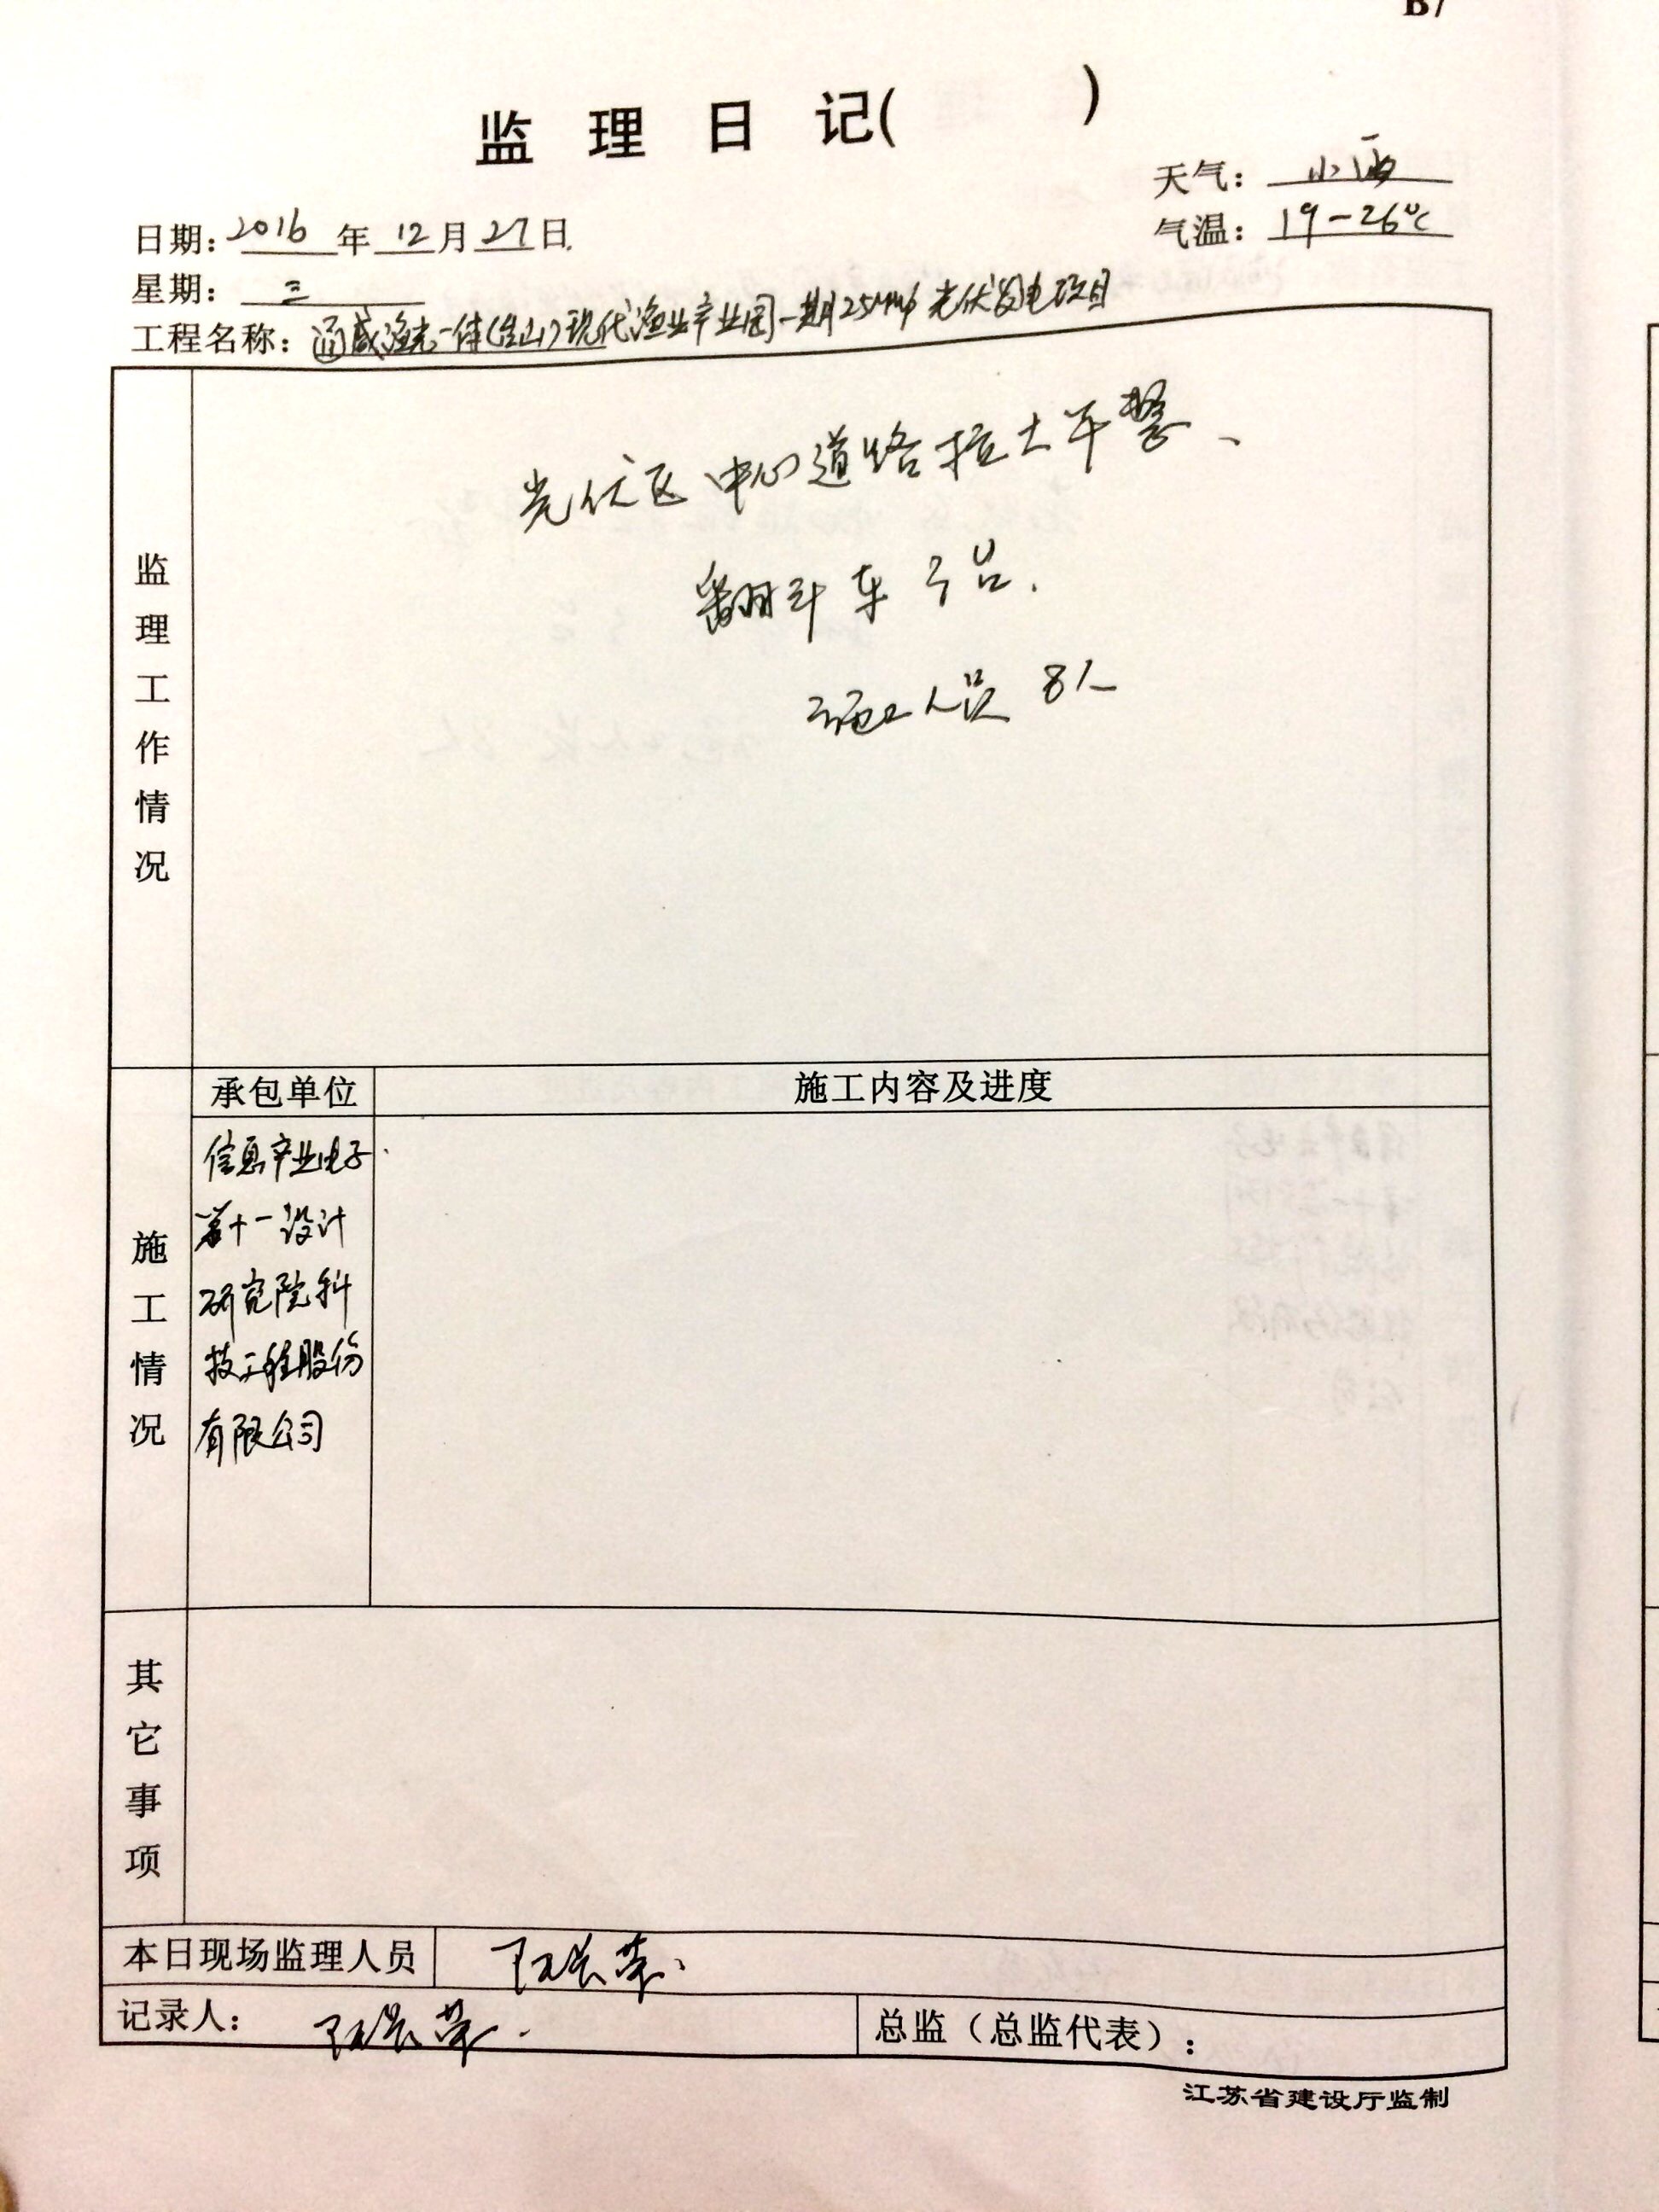 B7
监理日记( )
天气：小雨
日期：2016年12月27日
气温：19-26℃
星期：三
工程名称：通威渔光一体(台山)现代渔业产业园一期25MWp光伏发电项目
监理工作情况
光伏区中心道路拉土平整、
翻斗车3台.
施工人员 8人
施工情况
承包单位
施工内容及进度
信息产业电子
第十一设计
研究院科
技工程股份
有限公司
其它事项
本日现场监理人员
记录人：
总监（总监代表）：
江苏省建设厅监制